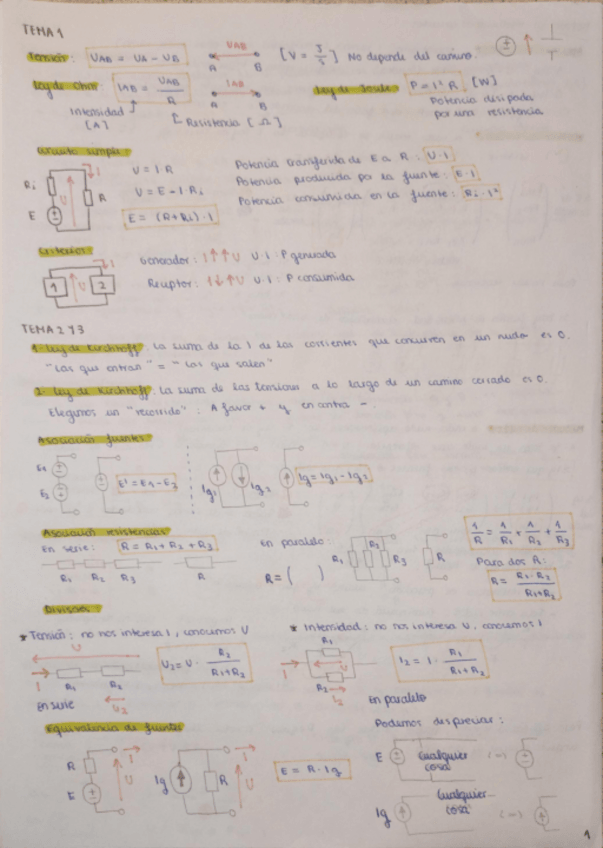 TEMA 1
Tensión: UAB = UA - UB UAB A B [V = J/C] No depende del camino.
Ley de Ohm: IAB = UAB/R IAB A B Ley de Joule P = I² R [W]
Intensidad [A] Resistencia (Ω) Potencia disipada por una resistencia
Circuito simple:
Ri E U I R
U = I·R
U = E - I·Ri
E = (R+Ri)·I
Potencia transferida de E a R: U·I
Potencia producida por la fuente: E·I
Potencia consumida en la fuente: Ri·I²
Criterios:
1 U 2 I
Generador: I↑↑U U·I: P generada
Receptor: I↓↑U U·I: P consumida
TEMA 2 Y 3
1ª Ley de Kirchhoff. La suma de la I de las corrientes que concurren en un nudo es 0.
"Las que entran" = "Las que salen"
2ª Ley de Kirchhoff. La suma de las tensiones a lo largo de un camino cerrado es 0.
Elegimos un "recorrido": A favor + y en contra -.
Asociación fuentes
E1 E2 Ig1 Ig2 Ig = Ig1 - Ig2
Asociación resistencias
En serie: R = R1 + R2 + R3
R1 R2 R3 R
En paralelo: R1 R2 R3 R
R = ( )
1/R = 1/R1 + 1/R2 + 1/R3
Para dos R:
R = R1·R2/R1+R2
Divisores
* Tensión: no nos interesa I, conocemos U
U I R1 R2 U2
U2 = U · R2/R1+R2
En serie
* Intensidad: no nos interesa U, conocemos I
I R1 U R2 I2
I2 = I · R1/R1+R2
En paralelo
Equivalencia de fuentes
R E I U Ig R I U
E = R·Ig
Podemos despreciar:
E Cualquier cosa
Ig Cualquier cosa
1